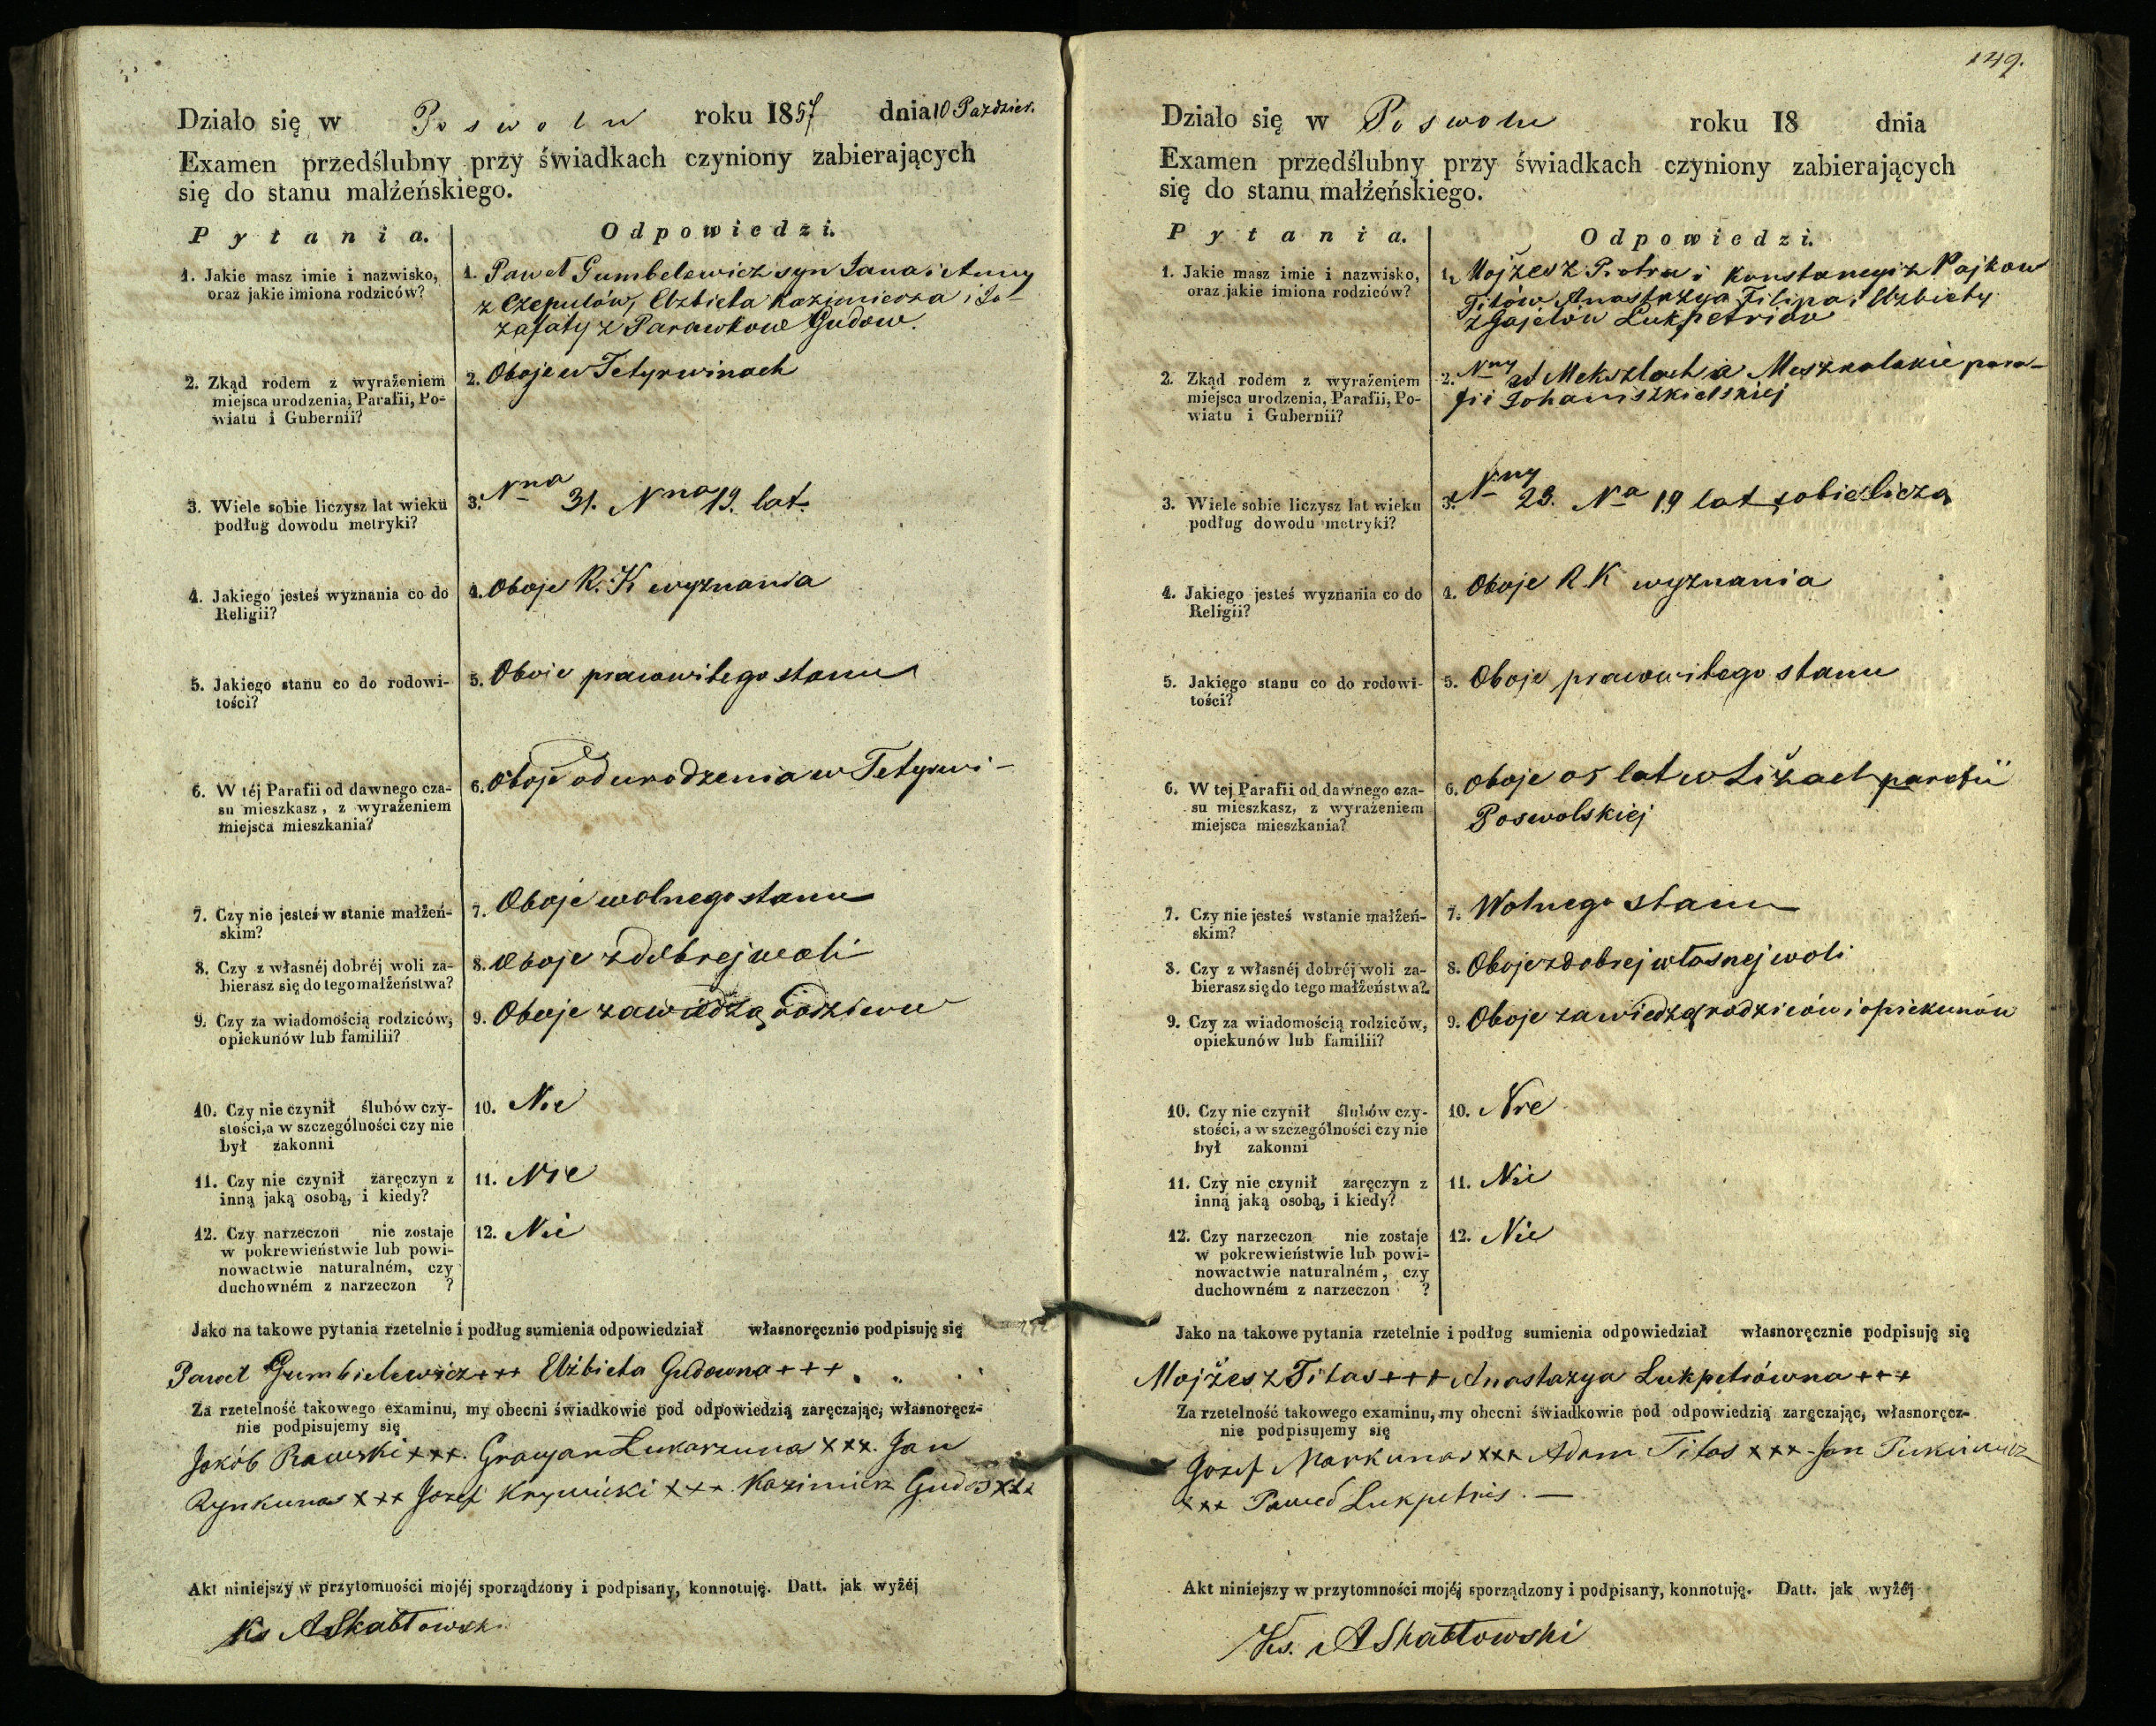 Działo się w Poswolu roku 1857 dnia 10 Paździer.
Examen przedślubny przy świadkach czyniony zabierających
się do stanu małżeńskiego.
Pytania. Odpowiedzi.
1. Jakie masz imie i nazwisko,
oraz jakie imiona rodziców?
1. Paweł Gumbelewicz syn Jana i Anny
z Czepulów, Elzbieta Kazimierza i Jo-
zafaty z Parawkow Gudow.
2. Zkąd rodem z wyrażeniem
miejsca urodzenia, Parafii, Po-
wiatu i Gubernii?
2. Oboje w Tetyrwinach
3. Wiele sobie liczysz lat wieku
podług dowodu metryki?
3. Nna 31. Nna 19. lat.
4. Jakiego jesteś wyznania co do
Religii?
4. Oboje R. K wyznania
5. Jakiego stanu co do rodowi-
tości?
5. Oboie prawowitego stanu
6. W téj Parafii od dawnego cza-
su mieszkasz, z wyrażeniem
miejsca mieszkania?
6. Oboje od urodzenia w Tetyrwi-
7. Czy nie jesteś w stanie małżeń-
skim?
7. Oboje wolnego stanu
8. Czy z własnéj dobréj woli za-
bierasz się do tego małżeństwa?
8. Oboje z dobrej woli
9. Czy za wiadomością rodziców,
opiekunów lub familii?
9. Oboje za wiedzą
10. Czy nie czynił ślubów czy-
stości, a w szczególności czy nie
był zakonni
10. Nie
11. Czy nie czynił zaręczyn z
inną jaką osobą, i kiedy?
11. Nie
12. Czy narzeczon nie zostaje
w pokrewieństwie lub powi-
nowactwie naturalném, czy
duchowném z narzeczon ?
12. Nie
Jako na takowe pytania rzetelnie i podług sumienia odpowiedział własnoręcznie podpisuję się
Paweł Gumbielewicz +++ Elżbieta Gudowna +++
Za rzetelność takowego examinu, my obecni świadkowie pod odpowiedzią zaręczając, własnoręcz-
nie podpisujemy się
Jakób Rawski xxx. Lukarzuna xxx. Jan
Rynkunas xxx Jozef Krywicki xxx Kazimierz Gudos xxx
Akt niniejszy w przytomności mojéj sporządzony i podpisany, konnotuję. Datt. jak wyżéj
Ks A Skabłowsk.
149.
Działo się w Poswolu roku 18 dnia
Examen przedślubny przy świadkach czyniony zabierających
się do stanu małżeńskiego.
Pytania. Odpowiedzi.
1. Jakie masz imie i nazwisko,
oraz jakie imiona rodziców?
1. Mojżesz Piotra i Konstancyi z Pajkow
Titów Anastazya Filipa i Elzbiety
z Gajelów Lukpetriow
2. Zkąd rodem z wyrażeniem
miejsca urodzenia, Parafii, Po-
wiatu i Gubernii?
2. Nny w Mekszlach a Meszkalakie para-
fii Johaniszkielskiej
3. Wiele sobie liczysz lat wieku
podług dowodu metryki?
3. Nny 23. Na 19 lat sobie liczą
4. Jakiego jesteś wyznania co do
Religii?
4. Oboje R K wyznania
5. Jakiego stanu co do rodowi-
tości?
5. Oboje prawowitego stanu
6. W tej Parafii od dawnego cza-
su mieszkasz, z wyrażeniem
miejsca mieszkania?
6. Oboje lat w parafii
Poswolskiej
7. Czy nie jesteś wstanie małżeń-
skim?
7. Wolnego stanu
8. Czy z własnéj dobréj woli za-
bierasz się do tego małżeństwa?
8. Oboje z dobrej własnej woli
9. Czy za wiadomością rodziców,
opiekunów lub familii?
9. Oboje za wiedzą rodziców i opiekunów
10. Czy nie czynił ślubów czy-
stości, a w szczególności czy nie
był zakonni
10. Nie
11. Czy nie czynił zaręczyn z
inną jaką osobą, i kiedy?
11. Nie
12. Czy narzeczon nie zostaje
w pokrewieństwie lub powi-
nowactwie naturalném, czy
duchowném z narzeczon ?
12. Nie
Jako na takowe pytania rzetelnie i podług sumienia odpowiedział własnoręcznie podpisuję się
Mojżesz Titas +++ Anastazya Lukpetrówna +++
Za rzetelność takowego examinu, my obecni świadkowie pod odpowiedzią zaręczając, własnoręcz-
nie podpisujemy się
Jozef Markunas xxx Adam Titas xxx Jan
xxx Paweł Lukpetris. —
Akt niniejszy w przytomności mojéj sporządzony i podpisany, konnotuję. Datt. jak wyżéj
Ks. A Skabłowski